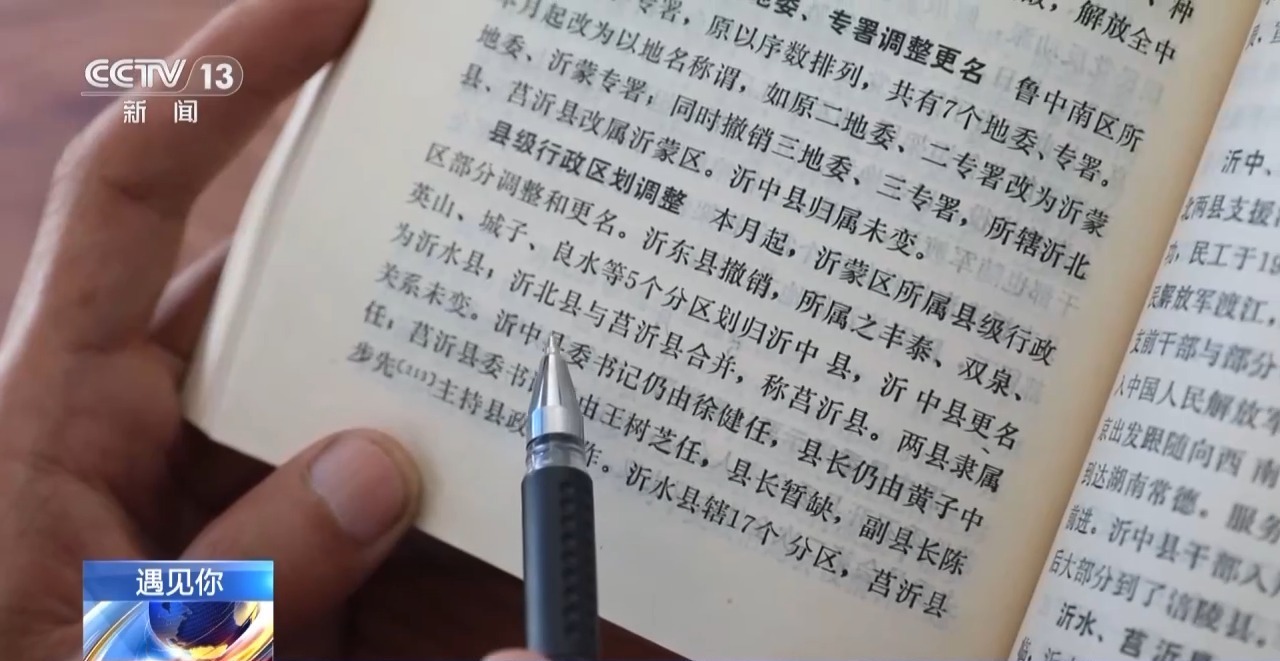 CCTV 13
新闻
种
，解放全中
地委、专署调整更名 鲁中南区所
专署，原以序数排列，共有7个地委、专署。
本月起改为以地名称谓，如原二地委、二专署改为沂蒙
地委、沂蒙专署；同时撤销三地委、三专署，所辖沂北
县、莒沂县改属沂蒙区。沂中县归属未变。
县级行政区划调整 本月起，沂蒙区所属县级行政
区部分调整和更名。沂东县撤销，所属之丰泰、双泉、
英山、城子、良水等5个分区划归沂中县，沂中县更名
为沂水县；沂北县与莒沂县合并，称莒沂县。两县隶属
关系未变。沂中县委书记仍由徐健任，县长仍由黄子中
任；莒沂县委书 由王树芝任，县长暂缺，副县长陈
步先 主持县政 作。沂水县辖17个分区，莒沂县
沂中、
北两县支援
，民工于19
民解放军渡江，
支前干部与部分
入中国人民解放军
京出发跟随向西南
到达湖南常德。服务
前进。沂中县干部入
后大部分到了涪陵县。
沂水、莒沂县
遇见你